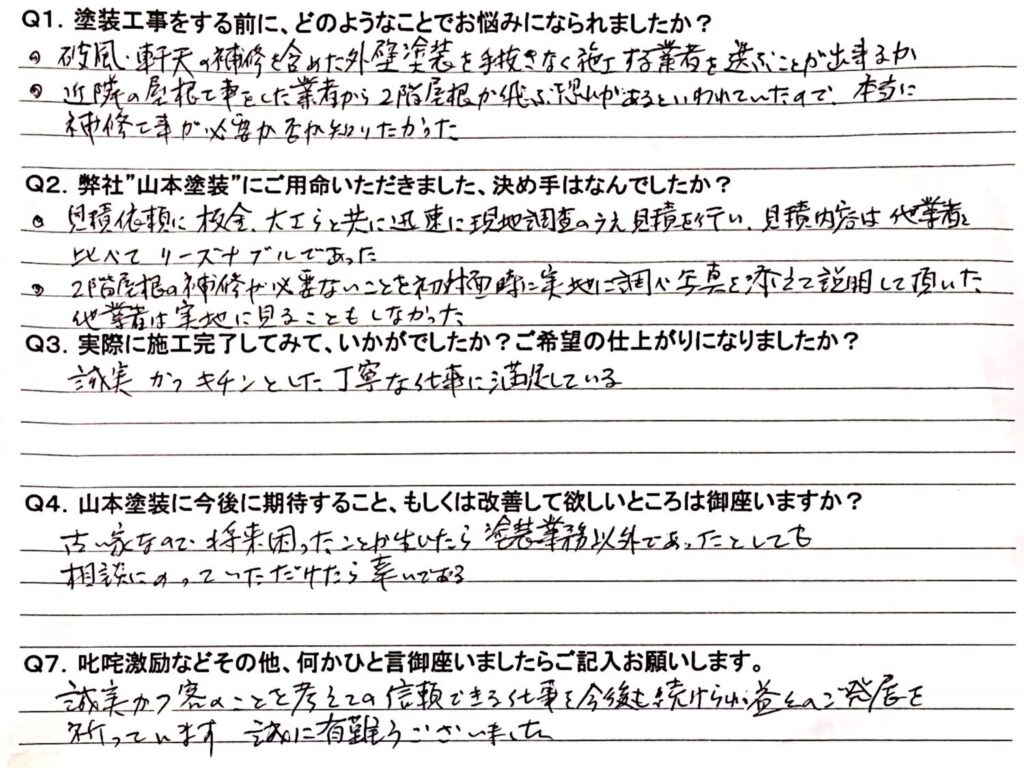 Q1. 塗装工事をする前に、どのようなことでお悩みになられましたか？
・破風・軒天の補修を含めた外壁塗装を手抜きなく施工する業者を選ぶことが出来るか
・近隣の屋根工事をした業者から2階屋根が飛ぶ恐れがあるといわれていたので、本当に
補修工事が必要か否か知りたかった
Q2. 弊社”山本塗装”にご用命いただきました、決め手はなんでしたか？
・見積依頼に板金、大工らと共に迅速に現地調査のうえ見積を行い、見積内容は他業者と
比べてリーズナブルであった
・2階屋根の補修が必要ないことを初対面時に実地に調べ写真を添えて説明して頂いた
他業者は実地に見ることもしなかった
Q3. 実際に施工完了してみて、いかがでしたか？ご希望の仕上がりになりましたか？
誠実かつキチンとした丁寧な仕事に満足している
Q4. 山本塗装に今後に期待すること、もしくは改善して欲しいところは御座いますか？
古い家なので、将来困ったことが生じたら塗装業務以外であったとしても
相談にのっていただけたら幸いである
Q7. 叱咤激励などその他、何かひと言御座いましたらご記入お願いします。
誠実かつ客のことを考えての信頼できる仕事を今後も続けられ、益々のご発展を
祈っています 誠に有難うございました